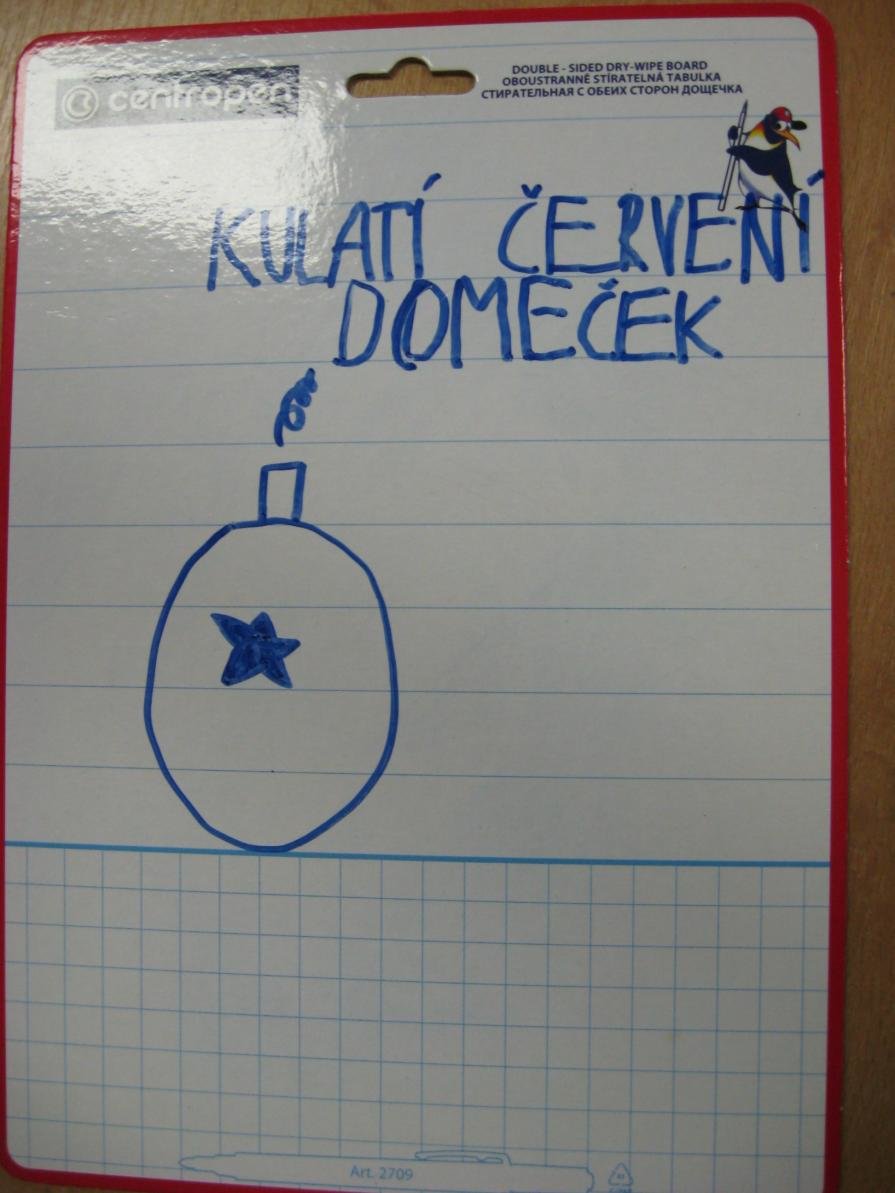 centropen
DOUBLE - SIDED DRY-WIPE BOARD
OBOUSTRANNĚ STÍRATELNÁ TABULKA
СТИРАТЕЛЬНАЯ С ОБЕИХ СТОРОН ДОЩЕЧКА
KULATÍ ČERVENÍ
DOMEČEK
Art. 2709